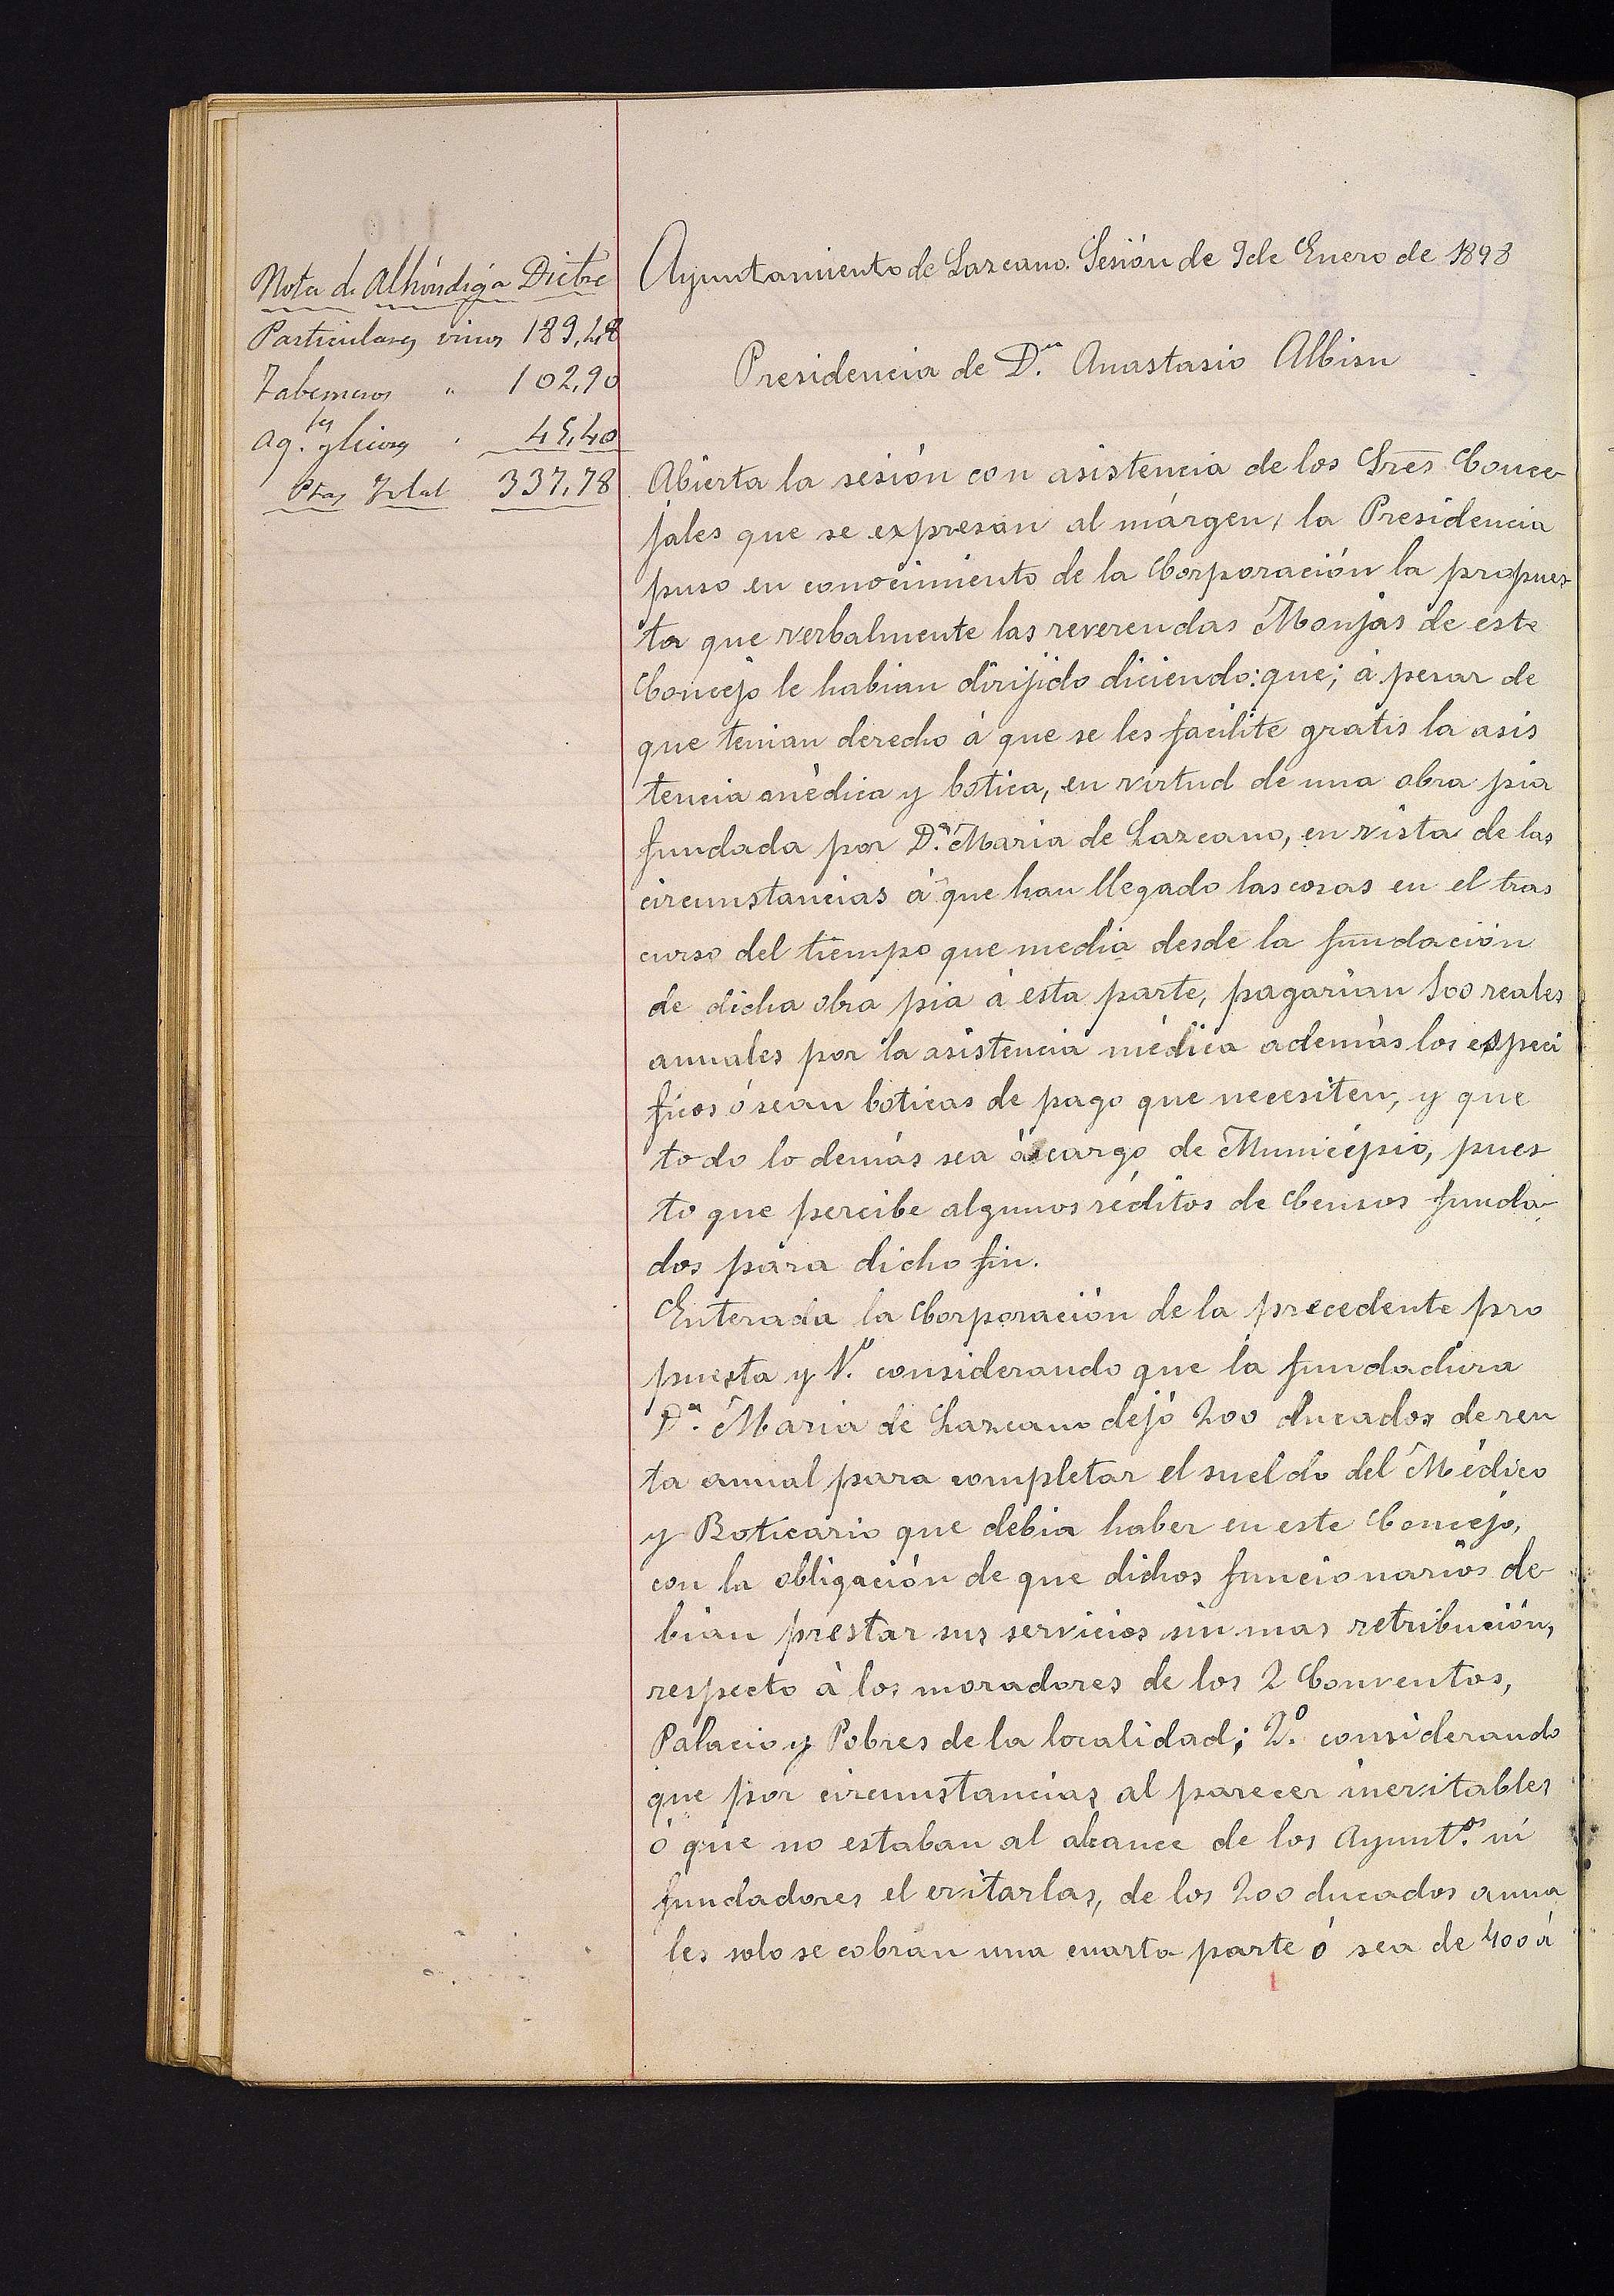 Nota de Alhóndiga Dicbre
Particulares vinos 189,48
Taberneros " 102,90
Ag.tes y licores " 45,40
Ptas Total 337,78
Ayuntamiento de Lazcano. Sesión de 9 de Enero de 1898
Presidencia de D.n Anastasio Albisu
Abierta la sesión con asistencia de los Sres Conce
jales que se expresan al márgen, la Presidencia
puso en conocimiento de la Corporación la propues
ta que verbalmente las reverendas Monjas de este
Concejo le habian dirijido diciendo: que; á pesar de
que tenian derecho á que se les facilite gratis la asis
tencia médica y botica, en virtud de una obra pia
fundada por D.ª Maria de Lazcano, en vista de las
circunstancias á que han llegado las cosas en el tras
curso del tiempo que media desde la fundación
de dicha obra pia á esta parte, pagarian 500 reales
anuales por la asistencia médica además los especi
ficos ó sean boticas de pago que necesiten, y que
todo lo demás sea á cargo de Municipio, pues
to que percibe algunos réditos de Censos funda-
dos para dicho fin.
Enterada la Corporación de la precedente pro
puesta y 1.º considerando que la fundadora
D.ª Maria de Lazcano dejó 200 ducados de ren
ta anual para completar el sueldo del Médico
y Boticario que debia haber en este Concejo,
con la obligación de que dichos funcionarios de
bian prestar sus servicios sin mas retribución,
respecto á los moradores de los 2 Conventos,
Palacio y Pobres de la localidad; 2.º considerando
que por circunstancias al parecer inevitables
ó que no estaban al alcance de los Ayunt.os ni
fundadores el evitarlas, de los 200 ducados anua
les solo se cobran una cuarta parte ó sea de 400 á